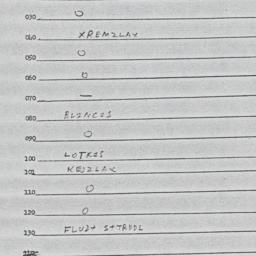 030 O
040 XREMZLAX
050 O
060 O
070 —
080 BLONCOS
090 O
100 LOTROS
101 KEJZLAX
110 O
120 O
130 FLUZX